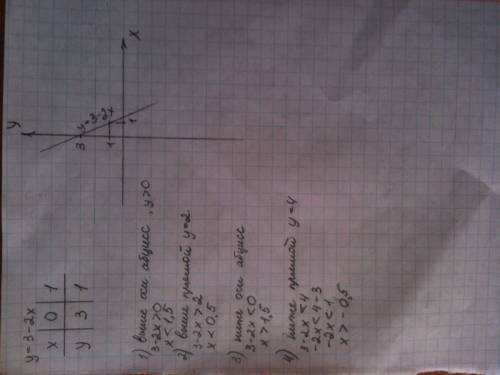 y = 3 - 2x
x | 0 | 1
y | 3 | 1
y
3
y = 3 - 2x
1
1
x
1) выше оси абцисс, y > 0
3 - 2x > 0
x < 1,5
2) выше прямой y = 2
3 - 2x > 2
x < 0,5
3) ниже оси абцисс
3 - 2x < 0
x > 1,5
4) ниже прямой y = 4
3 - 2x < 4
-2x < 4 - 3
-2x < 1
x > -0,5